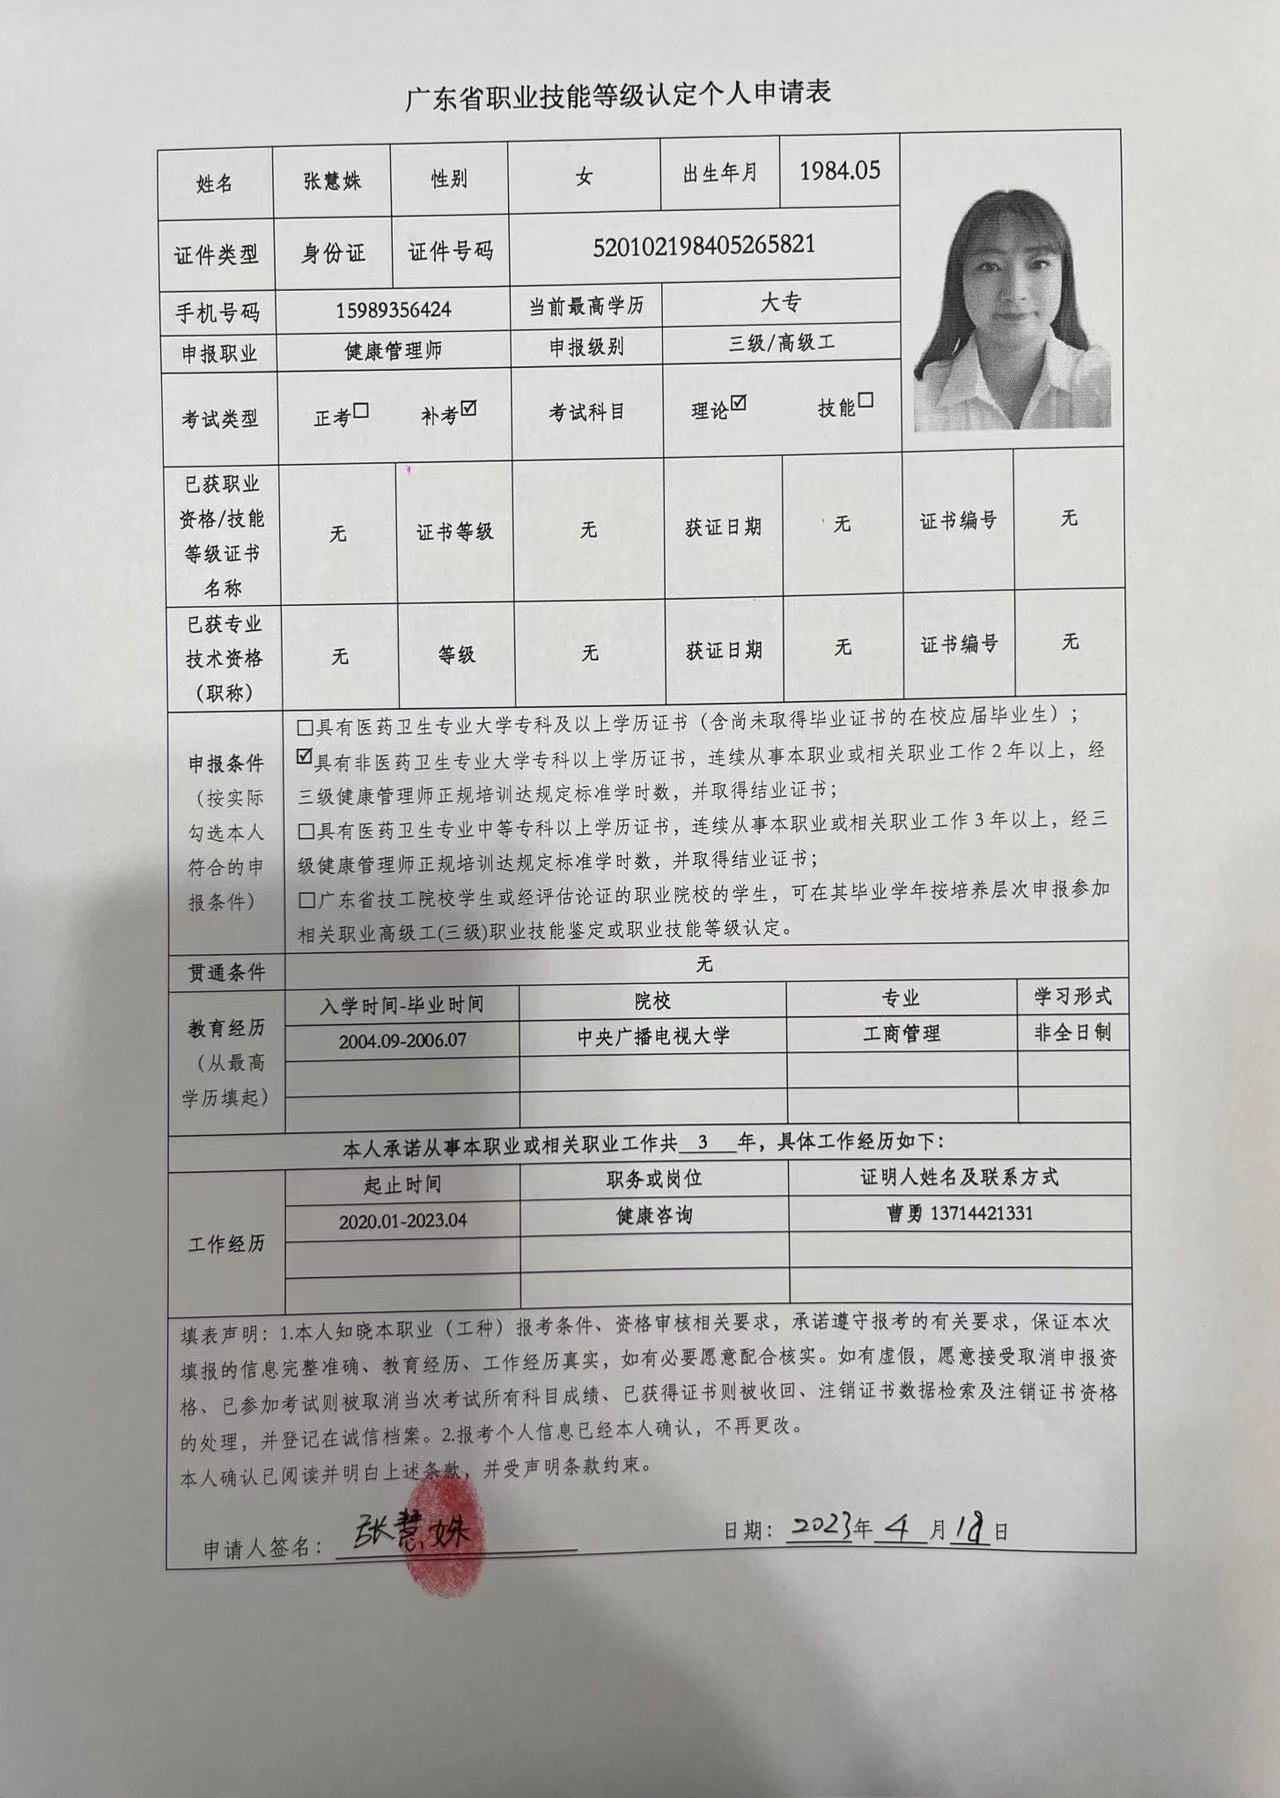 广东省职业技能等级认定个人申请表
姓名 张慧姝 性别 女 出生年月 1984.05
证件类型 身份证 证件号码 520102198405265821
手机号码 15989356424 当前最高学历 大专
申报职业 健康管理师 申报级别 三级/高级工
考试类型 正考☐ 补考☑ 考试科目 理论☑ 技能☐
已获职业
资格/技能
等级证书
名称
无 证书等级 无 获证日期 无 证书编号 无
已获专业
技术资格
（职称）
无 等级 无 获证日期 无 证书编号 无
申报条件
（按实际
勾选本人
符合的申
报条件）
☐具有医药卫生专业大学专科及以上学历证书（含尚未取得毕业证书的在校应届毕业生）；
☑具有非医药卫生专业大学专科以上学历证书，连续从事本职业或相关职业工作 2 年以上，经
三级健康管理师正规培训达规定标准学时数，并取得结业证书；
☐具有医药卫生专业中等专科以上学历证书，连续从事本职业或相关职业工作 3 年以上，经三
级健康管理师正规培训达规定标准学时数，并取得结业证书；
☐广东省技工院校学生或经评估论证的职业院校的学生，可在其毕业学年按培养层次申报参加
相关职业高级工(三级)职业技能鉴定或职业技能等级认定。
贯通条件 无
教育经历
（从最高
学历填起）
入学时间-毕业时间 院校 专业 学习形式
2004.09-2006.07 中央广播电视大学 工商管理 非全日制
本人承诺从事本职业或相关职业工作共 3 年，具体工作经历如下：
工作经历
起止时间 职务或岗位 证明人姓名及联系方式
2020.01-2023.04 健康咨询 曹勇 13714421331
填表声明：1.本人知晓本职业（工种）报考条件、资格审核相关要求，承诺遵守报考的有关要求，保证本次
填报的信息完整准确、教育经历、工作经历真实，如有必要愿意配合核实。如有虚假，愿意接受取消申报资
格、已参加考试则被取消当次考试所有科目成绩、已获得证书则被收回、注销证书数据检索及注销证书资格
的处理，并登记在诚信档案。2.报考个人信息已经本人确认，不再更改。
本人确认已阅读并明白上述条款，并受声明条款约束。
申请人签名：张慧姝 日期：2023年 4 月 18 日